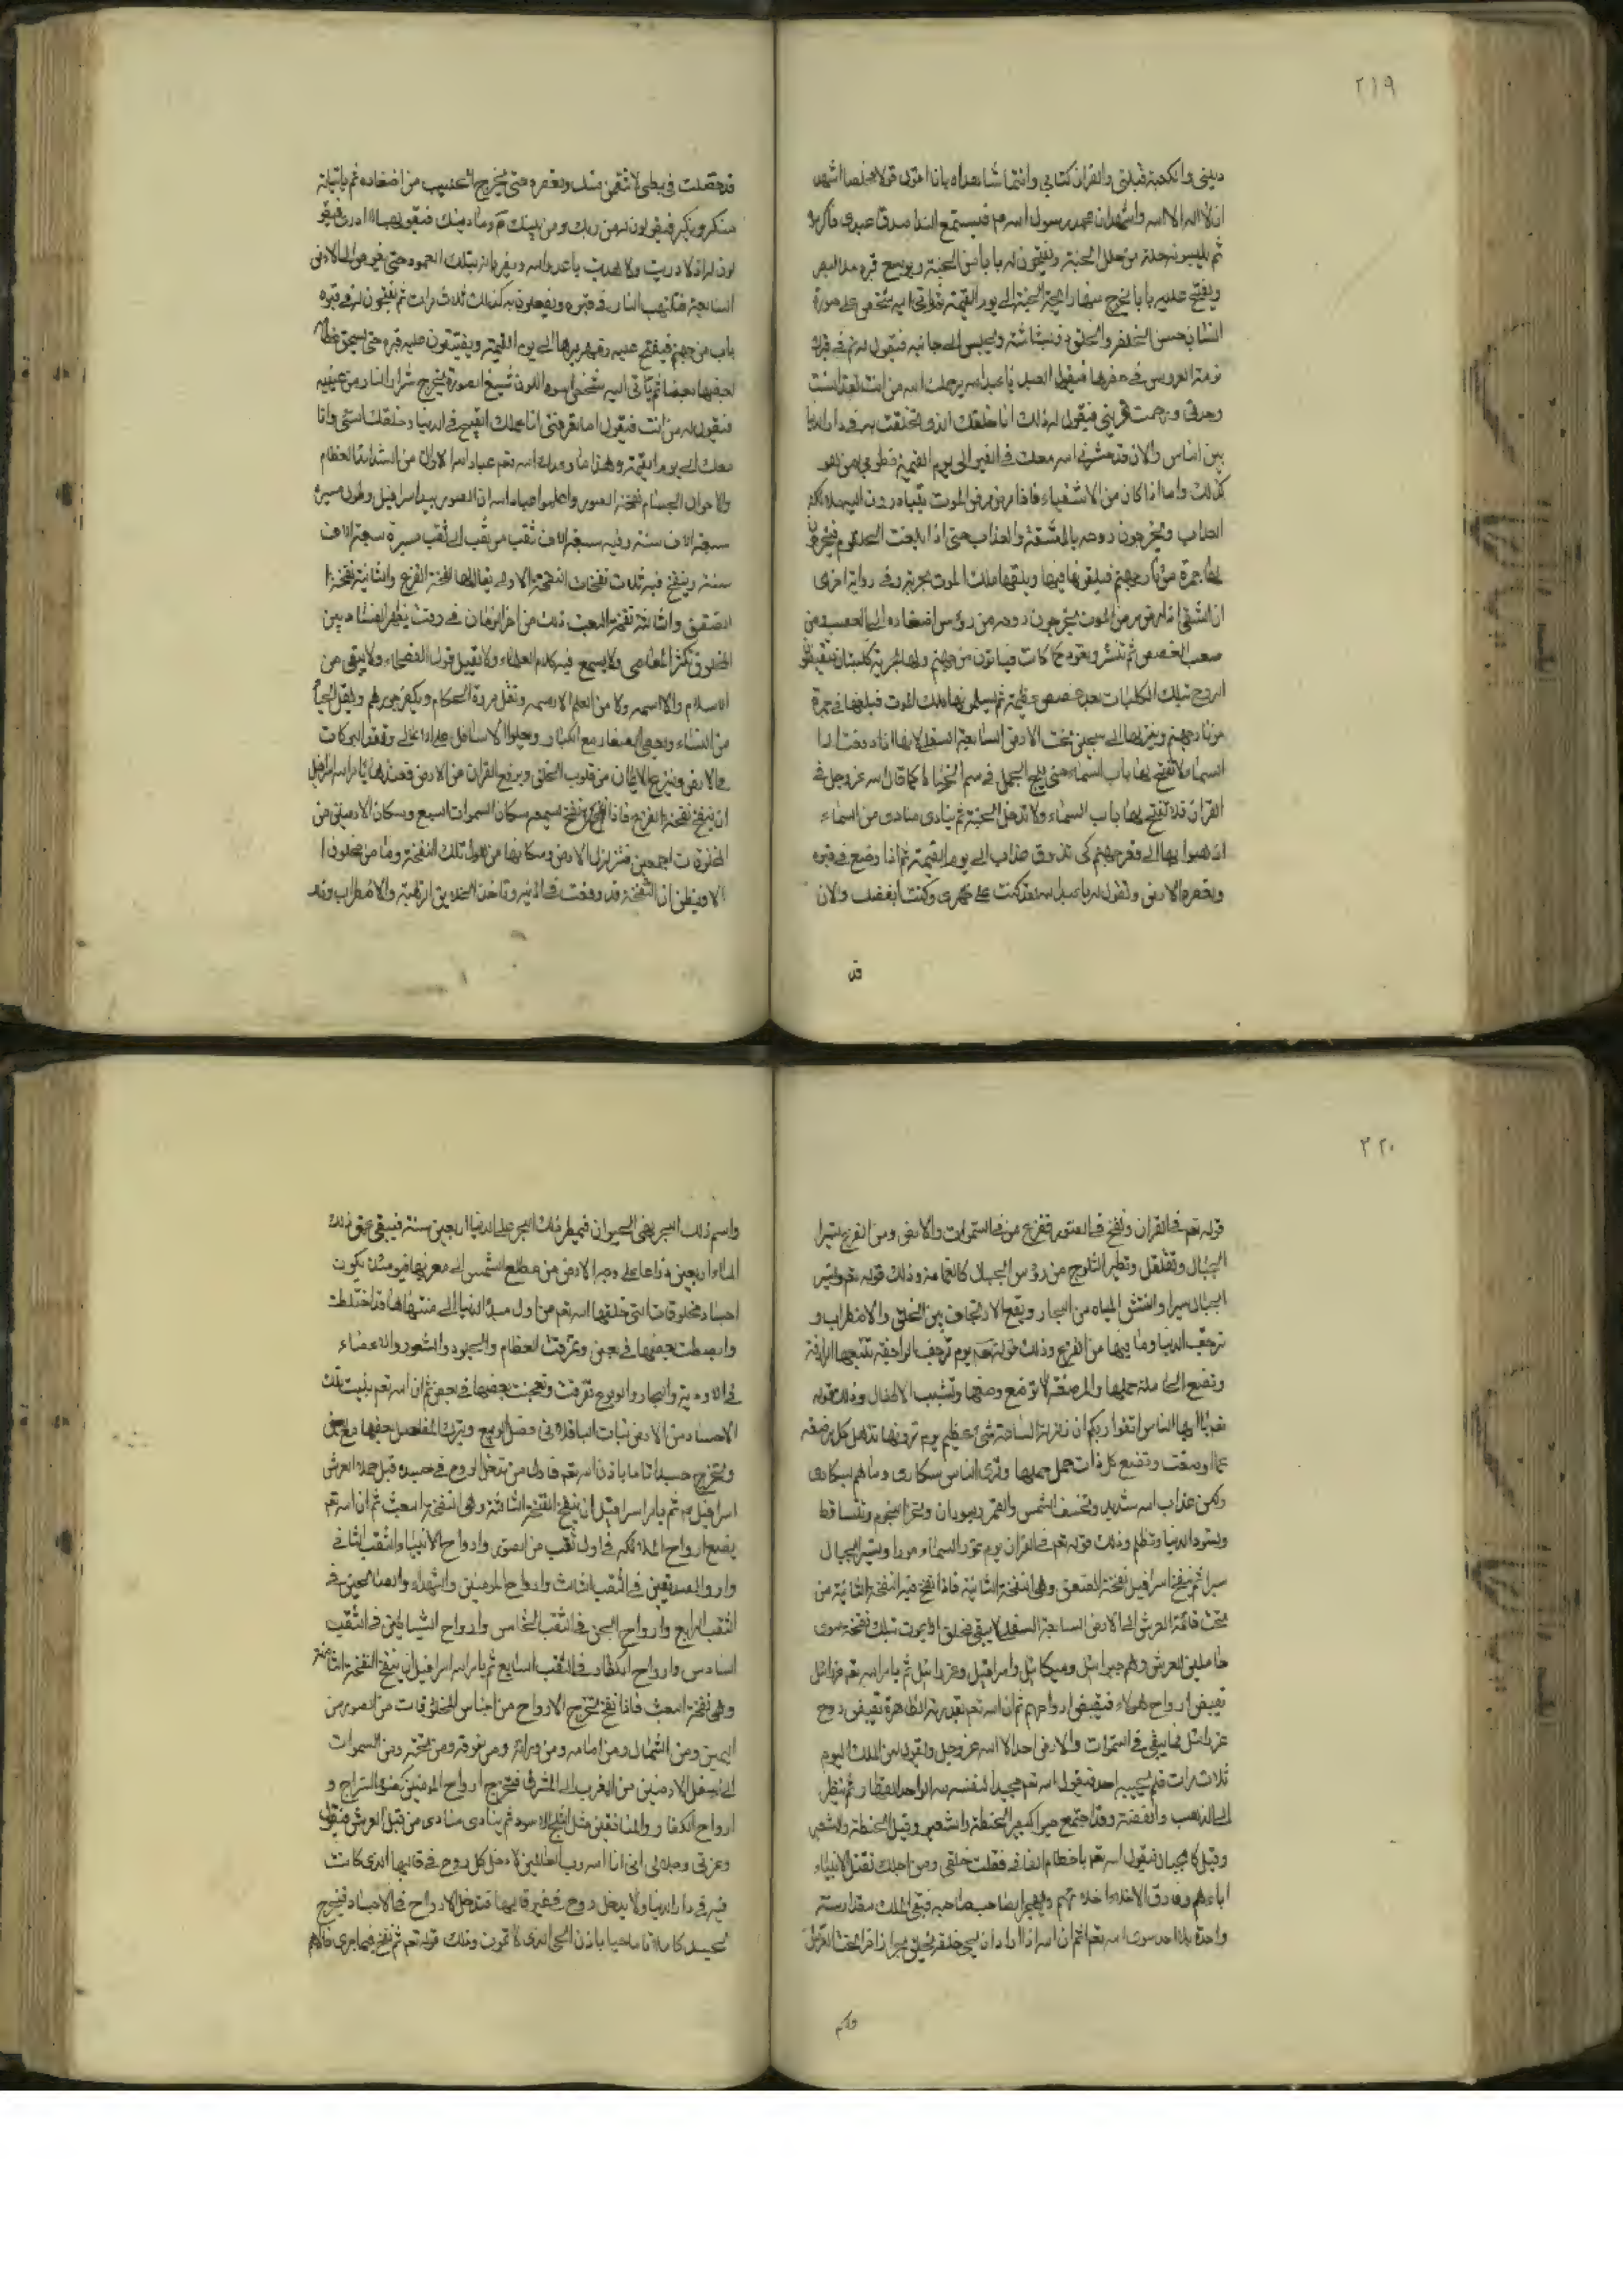 ٢١٩
ديني والكعبة قبلتي والقران كتابي وانتما شاهداه بانا اموت قولا مخلصا اشهد
ان لا اله الا الله واشهد ان محمد رسول الله فيستمع الندا صدق عبدي فاكرموا
ثم يلبسونه حلة من حلل الجنة ويفتحون له بابا من الجنة ويوسع قبره مد البصر
ويفتح عليه بابا يخرج منها رايحة الجنة الى يوم القيمة ثم اتي اليه شخص على صورة
انسان حسن الخلقر والخلق وبشاشته ويجلس الى جانبه فيقول له نم في قبرك
نومة العروس في حفرها فيقول العبد يا عبد الله يرحمك الله من انت لقد انست
وحدتي ورحمت غربتي فيقول له ذلك انا خلقك الذي تخلقت به في دار الدنيا
بين الناس والان قد حشرني الله معك في القبر الى يوم القيمة فطوبى لمن هو
كذلك واما اذا كان من الاشقياء فاذا مرض مرض الموت يتبادرون اليه ملائكة
العذاب ويخرجون روحه بالمشقة والعذاب حتى اذا بلغت الحلقوم
لها جمرة من نار جهنم فيلقونها فيها ويلقها ملك الموت بحربة وفي رواية اخرى
ان الشقي اذا مرض مرض الموت يخرجون روحه من رؤس اضفاده الى العصب من
صعب الغصص ثم تنشر وتعود كما كانت فياتون من جهنم ولها حربة كلبتان
الروح بتلك الكلبتان بعد غصص عظيمة ثم يسلمونها ملك الموت فيلفها في جمرة
من نار جهنم وينزلها الى سجين تحت الارض السابعة السفلى لانها اذا رفعت الى
السماء لا تفتح لها باب السماء حتى يلج الجمل في سم الخياط كما قال الله عز وجل في
القرآن فلا تفتح لها باب السماء ولا تدخل الجنة ثم ينادي منادي من السماء
اذهبوا بها الى قعر جهنم كي تذوق عذاب الى يوم القيمة ثم اذا وضع في قبره
وبعصره الارض وتقول له يا عبد الله لقد كنت على ظهري وكنت ابغضك والان
قد
قد حصلت في بطني لانتقمن منك وتعصره حتى يخرج الحليب من اضفاده ثم ياتيانه
منكر ونكير فيقولون له من ربك ومن نبيك وما دينك فيقول لهما لا ادري فيقو
لون له لا دريت ولا هديت يا عدو الله ويضربانه بتلك العمود حتى يغوص الى الارض
السابعة فتلتهب النار في قبره ويفعلون به كذلك ثلاث مرات ثم يفتحون له في قبره
باب من جهنم فيفتح عليه زمهريرها الى يوم القيمة ويضيقون عليه قبره حتى يسحق عظامه
بعضها بعضا ثم ياتي اليه شخص اسود اللون شنيع الصورة يخرج شرار النار من عينيه
فيقول له من انت فيقول اما تعرفني انا عملك القبيح في الدنيا وخلقك السئ وانا
معك الى يوم القيمة وهذا ما وعدك الله نعم عباد الله الاوان من الشدائد العظام
والاحوال الجسام نفخة الصور واعلموا عباد الله ان الصور بيد اسرافيل وطول مسيرة
سبعة الاف سنة وفيه سبعة الاف ثقب من ثقب الى ثقب مسيرة سبعة الاف
سنة وينفخ فيه ثلاث نفخات النفحة الاولى يقال لها نفخة الفزع والثانية نفخة ا
لصعق والثالثة نفخة البعث وذلك من اخر الزمان في وقت يظهر الفساد بين
الخلق وتكثر المعاصي ولا يسمع فيه كلام العلماء ولا يقبل قول الفصحاء ولا يبقى من
الاسلام والا اسمه ولا من العلم الا رسمه وتقل مروة الحكام ويكثر جورهم ويقل الحيآ
من النساء ويجفى الصغار مع الكبار ويعلوا الاسافل على الاعالي وتفقد البركات
على الارض وينزع الايمان من قلوب الخلق ويرفع القران من الارض فعندها يامر الله اسرافيل
ان ينفخ نفخة الفزع فاذا نفخ يسمعه سكان السموات السبع وسكان الارضين من
المخلوقات اجمعين فتزلزل الارض وسكانها من هول تلك النفخة وما من مخلوق ا
الا ويظن ان النفخة قد وقعت في اذنيه وتاخذ الخلايق الرهبة والاضطراب وذلك
٣٢٠
قوله نعم في القران ونفخ في الصور ففزع من في السموات والارض ومن الفزع تسيرا
الجبال وتقلقل وتطير الثلوج من رؤس الجبال كالغمامة وذلك قوله نعم وتسير
الجبال سيرا وانتشق المياه من البحار ويقع الارتجاف بين الخلق والاضطراب و
ترجف الدنيا وما فيها من الفزع وذلك قوله نعم يوم ترجف الراجفة تتبعها الرادفة
وتضع الحاملة حملها والمرضعة لا ترضع وضعها وتشيب الاطفال وذلك قوله
نعم يا ايها الناس اتقوا ربكم ان زلزلة الساعة شئ عظيم يوم ترونها تذهل كل مرضعة
عما ارضعت وتضع كل ذات حمل حملها وترى الناس سكارى وما هم بسكارى
ولكن عذاب الله شديد وتخسف الشمس والقمر ويعودان وتخر النجوم وتتساقط
وتسود الدنيا وتظلم وذلك قوله نعم في القران يوم تمور السماء مورا وتسير الجبال
سيرا ثم ينفخ اسرافيل نفخة الصعق وهي النفخة الثانية فاذا نفخ فيه النفخة الثانية من
تحت قائمة العرش الى الارض السابعة السفلى لا يبقى مخلق الا يموت بتلك نفخة سوى
حاملين العرش وهم جبرائيل وميكائيل واسرافيل وعزرائيل ثم يامر الله نعم عزرائيل
بقبض ارواح هؤلاء فيقبض ارواحهم ثم ان الله نعم بقدرته الظاهرة يقبض روح
عزرائيل فما يبقى في السموات والارض احد الا الله عز وجل ويقول لمن الملك اليوم
ثلاث مرات فلم يجيبه احد فيقول الله نعم مجيبا لنفسه لله الواحد القهار ثم ينظر
الى الذهب والفضة وقد اجتمع صبرا كصبر الحنطة والشعير وقيل الحنطة والشعير
وقيل كالجبال فيقول الله نعم يا حطام الفانى فتنت خلقي ومن اجلك تقتل الابناء
اباءهم وفارق الاخلاء اخلائهم ويهجر الصاحب صاحبه فيبقى الملك مقدار سنة
واحدة بلا احد سوى الله نعم ثم ان الله اذا اراد ان يحيى خلقه يخلق بحرا زاخرا تحت العرش
واسم ذلك البحر بحر الحيوان فيمطر ذلك البحر على الدنيا اربعين سنة فيبقى عمق ذلك
الماء اربعين ذراعا على وجه الارض من مطلع الشمس الى مغربها فيومئذ تكون
اجساد مخلوقات التي خلقها الله نعم من اول مبدأ الدنيا الى منتهاها قد اختلطت
وانبسطت بعضها في بعض وتمزقت العظام والجلود والشعور والاعضاء
في الاودية والبحار والبر يوم تفرقت وتعجنت بعضها في بعض ثم ان الله نعم ينبت تلك
الاجساد من الارض نبات الباقلاء في فصل الربيع ويترك المفاصل بعضها مع بعض
ويخرج جسدا تاما باذن الله نعم فاول من تدخل الروح في جسده قبل حملة العرش
اسرافيل ثم يامر اسرافيل ان ينفخ النفخة الثالثة وهي النفخة البعث ثم ان الله نعم
يضع ارواح الملائكه في اول ثقب من الصور وارواح الانبياء والثقب الثاني
وارواح الصديقين في الثقب الثالث وارواح المؤمنين والشهداء والصالحين في
الثقب الرابع وارواح الجن في الثقب الخامس وارواح الشياطين في الثقب
السادس وارواح الكفار في الثقب السابع ثم يامر الله اسرافيل ان ينفخ النفخة الثالثة
وهي نفخة البعث فاذا نفخ تخرج الارواح من اجناس المخلوقات من الصور من
اليمين ومن الشمال ومن امامه ومن ورائه ومن فوقه ومن تحته ومن السموات
الى اسفل الارضين من المغرب الى المشرق فتخرج ارواح المؤمنين كضوء السراج و
ارواح الكفار والمنافقين مثل الثلج الاسود ثم ينادي منادي من قبل العرش فيقول
وعزتي وجلالي انى انا الله رب العالمين لادخل كل روح في قالبها الذي كانت
فيه في دار الدنيا ولا يدخل روح في غير قالبها فتدخل الارواح في الاجساد فتخرج
الجسد كاملا تاما حيا باذن الحي الذي لا يموت وذلك قوله نعم ثم نفخ فيها اخرى فاذا هم